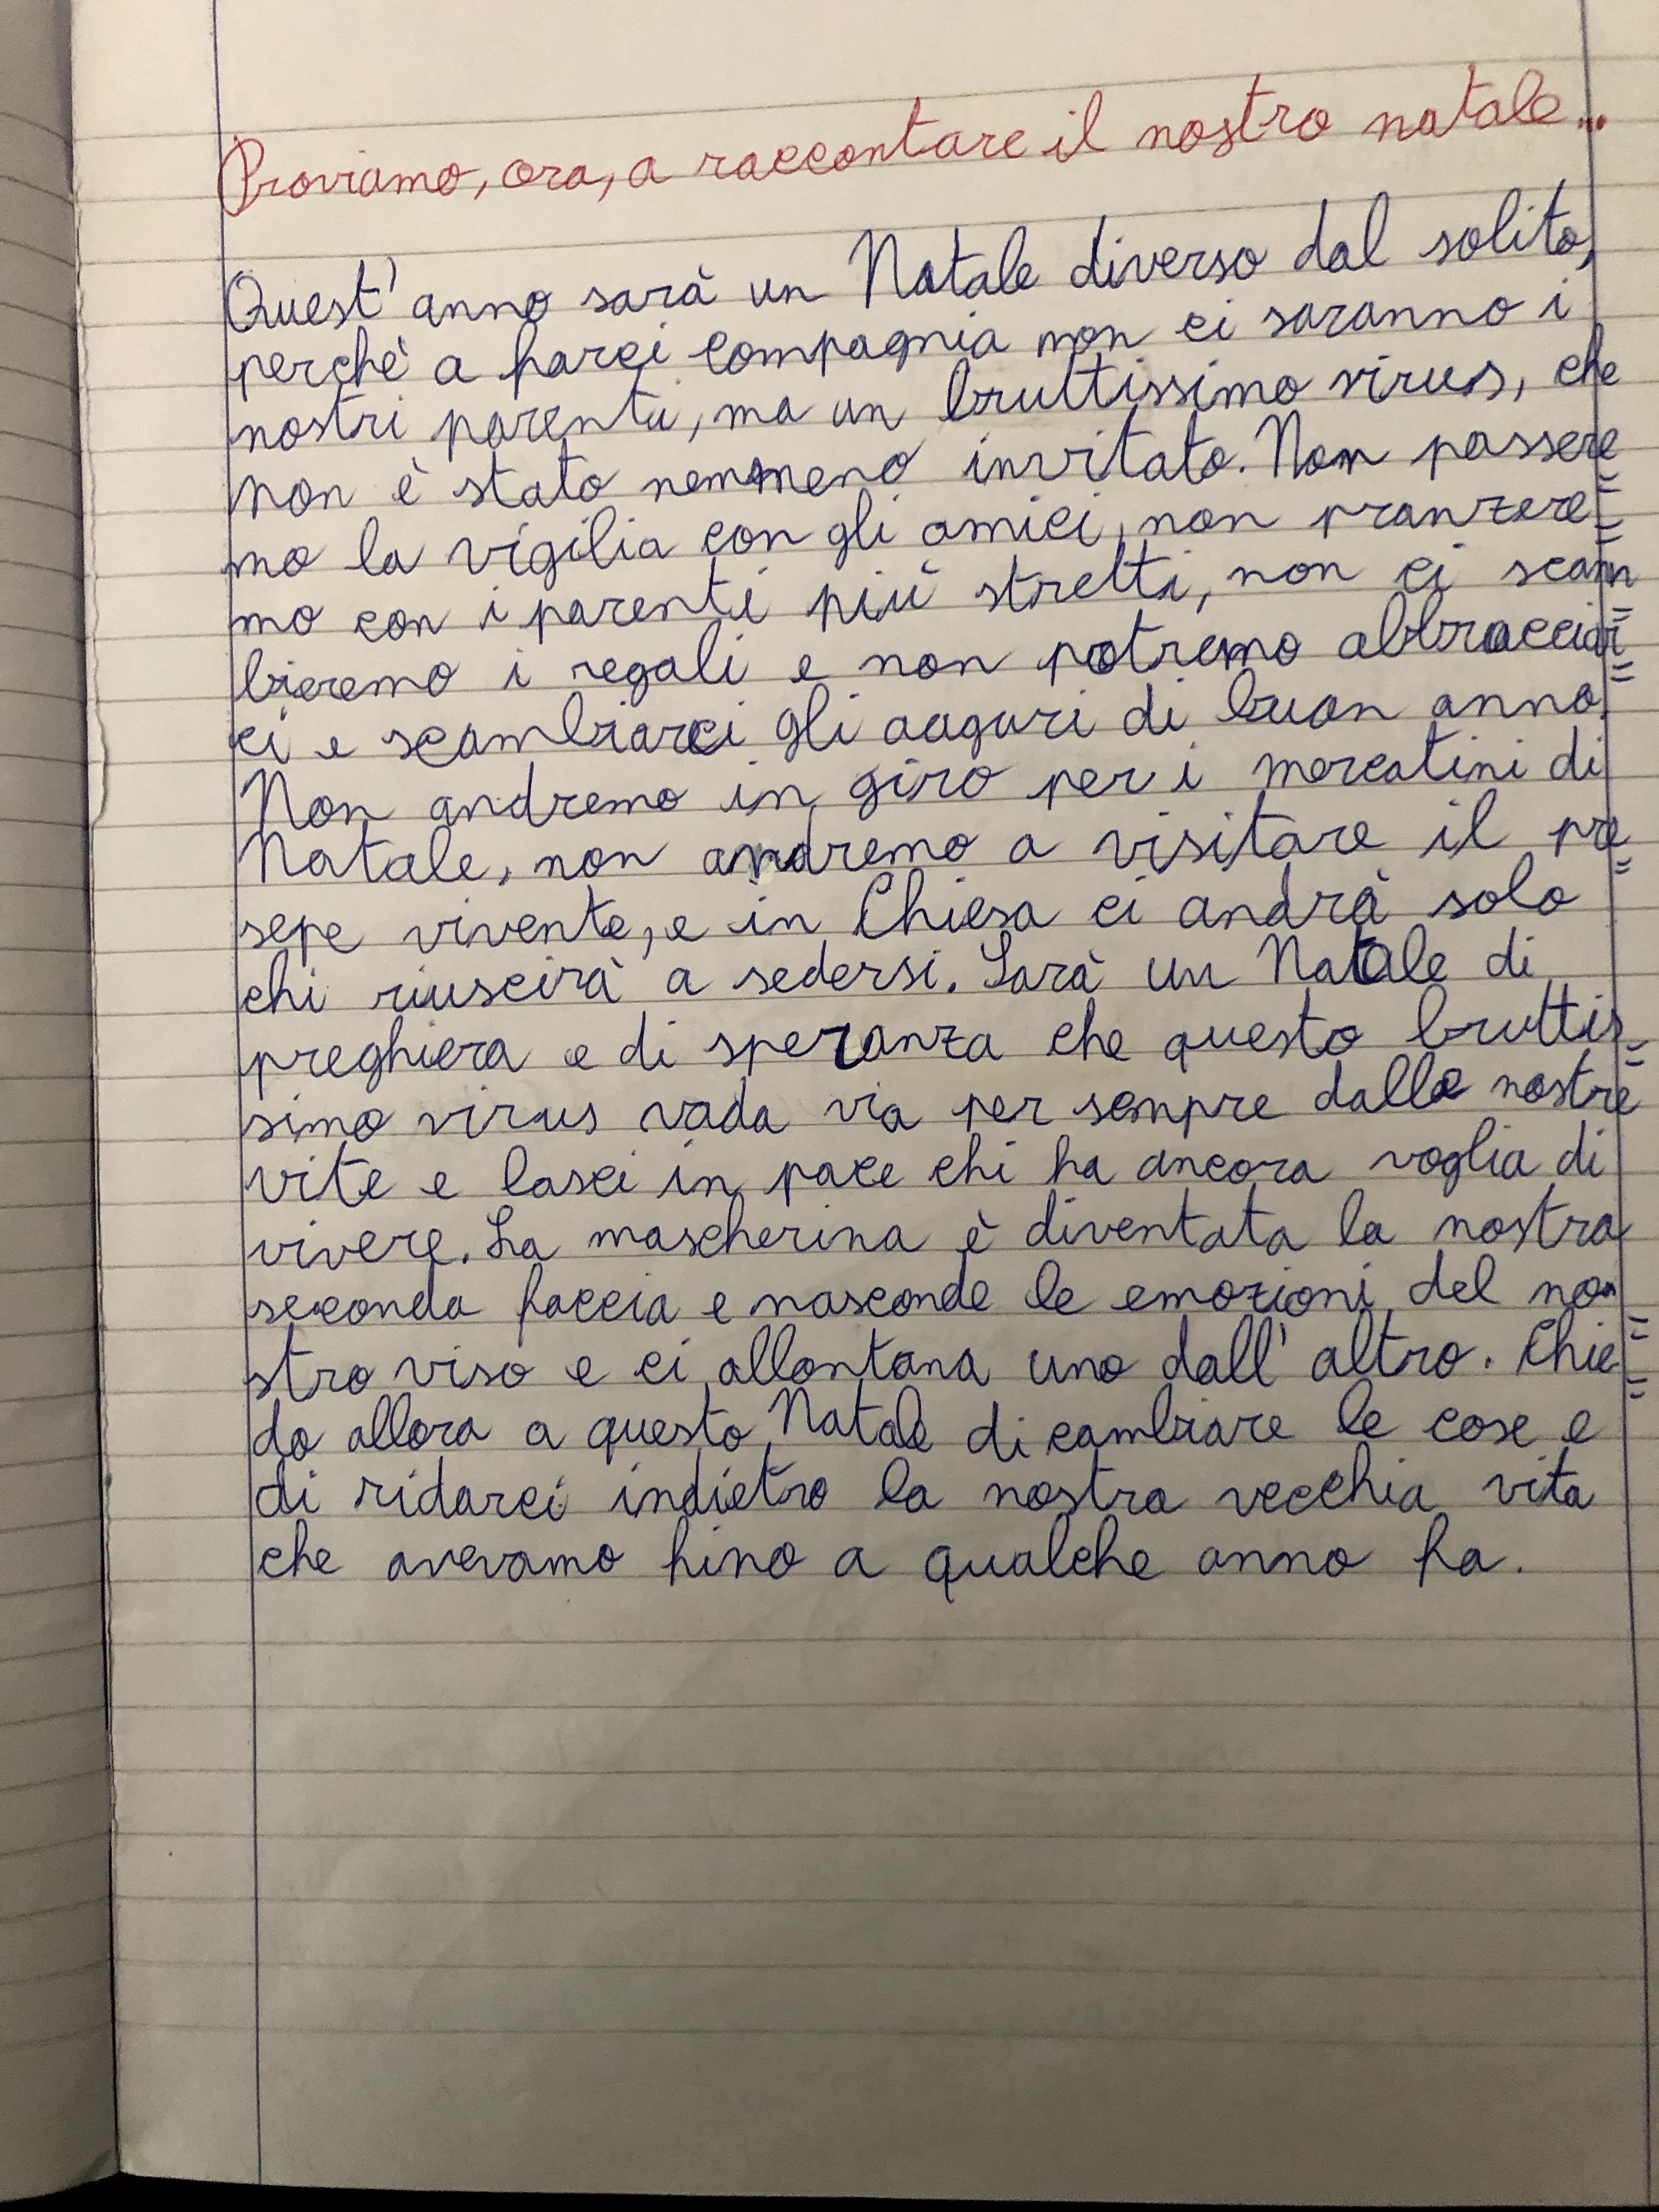 Proviamo, ora, a raccontare il nostro natale...
Quest'anno sarà un Natale diverso dal solito,
perchè a farci compagnia non ci saranno i
nostri parenti, ma un bruttissimo virus, che
non è stato nemmeno invitato. Non passere=
mo la vigilia con gli amici, non pranzere=
mo con i parenti più stretti, non ci scam=
bieremo i regali e non potremo abbracciar=
ci e scambiarci gli auguri di buon anno.
Non andremo in giro per i mercatini di
Natale, non andremo a visitare il pre=
sepe vivente, e in Chiesa ci andrà solo
chi riuscirà a sedersi. Sarà un Natale di
preghiera e di speranza che questo bruttis=
simo virus vada via per sempre dalle nostre
vite e lasci in pace chi ha ancora voglia di
vivere. La mascherina è diventata la nostra
seconda faccia e nasconde le emozioni del no=
stro viso e ci allontana uno dall'altro. Chie=
do allora a questo Natale di cambiare le cose e
di ridarci indietro la nostra vecchia vita
che avevamo fino a qualche anno fa.